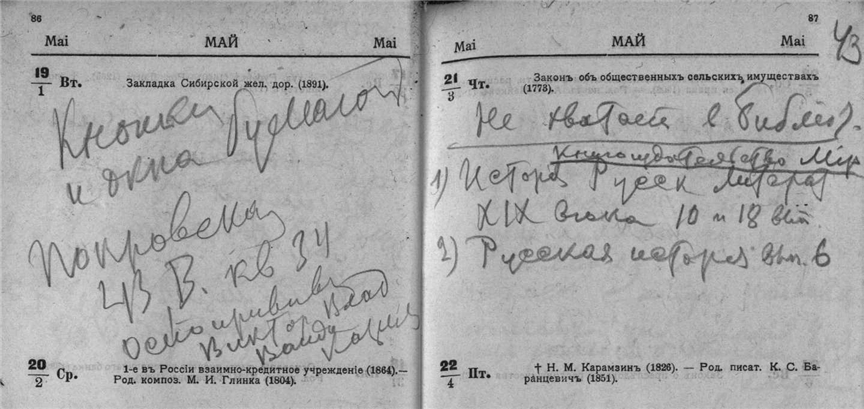 86
Mai МАЙ Mai
19/1 Вт. Закладка Сибирской жел. дор. (1891).
Кношки бумагой
и окна
Покровская
4В В. кв 34
Виктор Влад
20/2 Ср. 1-е въ Россіи взаимно-кредитное учрежденіе (1864).—
Род. композ. М. И. Глинка (1804).
87
Mai МАЙ Mai
43
21/3 Чт. Законъ объ общественныхъ сельскихъ имуществахъ
(1773).
Не хватает в библ.
Книгоиздательство Мир
1) История Русск литерат
XIX века 10 и 18 вып.
2) Русская история вып. 6
22/4 Пт. † Н. М. Карамзинъ (1826). — Род. писат. К. С. Ба-
ранцевичъ (1851).